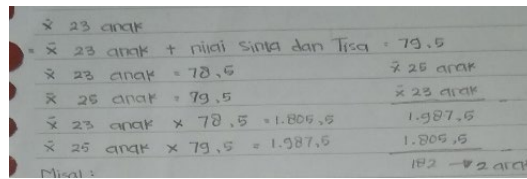 x̄ 23 anak
= x̄ 23 anak + nilai sinta dan Tisa = 79.5
x̄ 23 anak = 78,5
x̄ 25 anak = 79,5
x̄ 23 anak × 78,5 = 1.805,5
x̄ 25 anak × 79,5 = 1.987,5
x̄ 25 anak
x̄ 23 anak
1.987,5
1.805,5
182 → 2 ana
Misal: